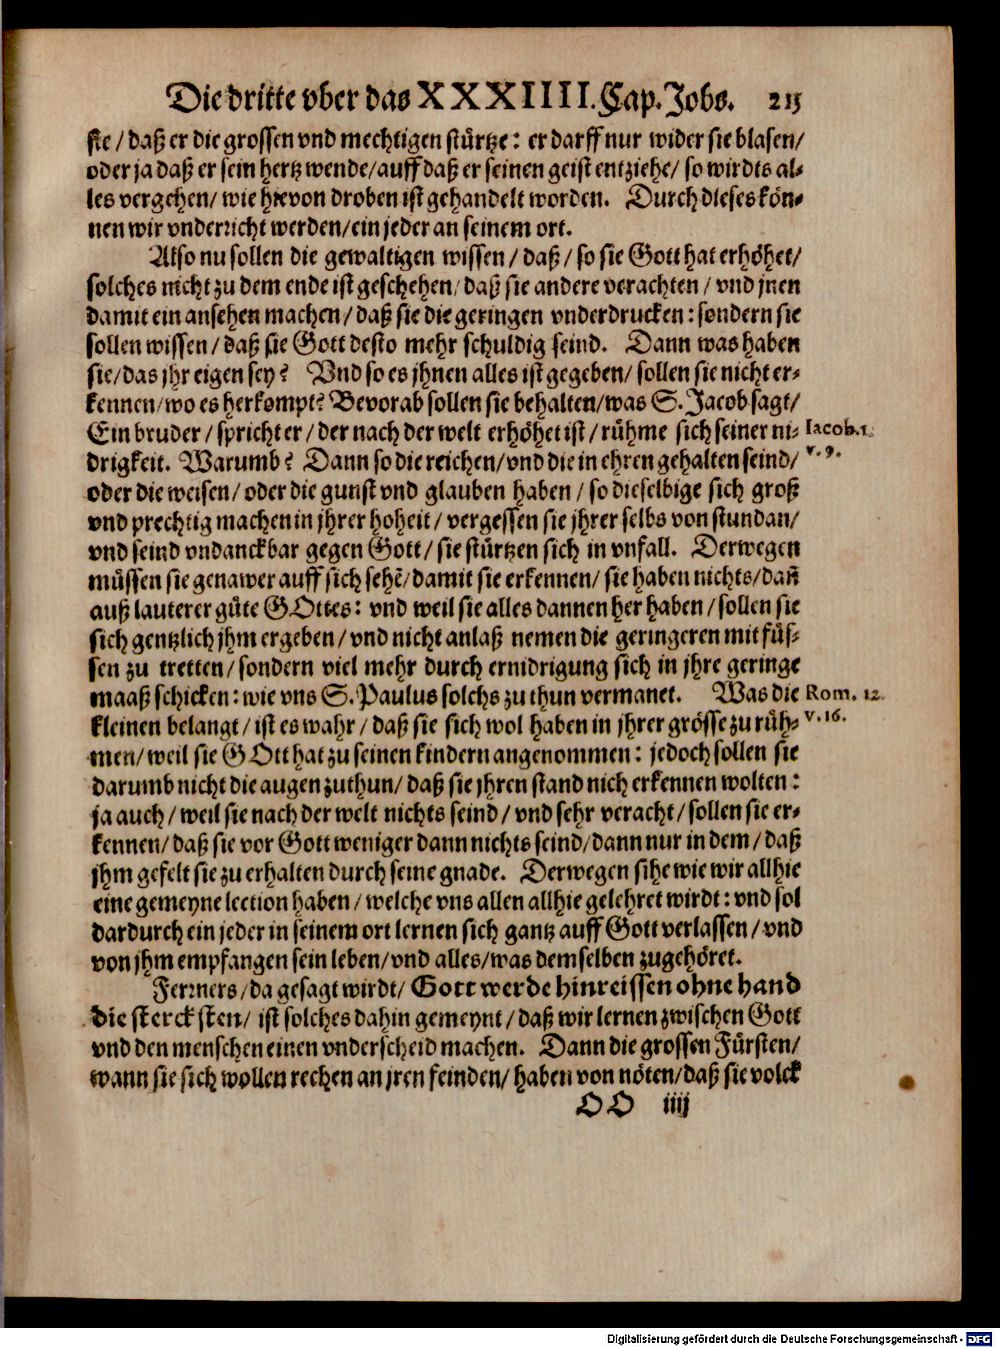 Die dritte vber das XXXIIII. Cap. Jobs. 215
ste / daß er die grossen vnd mechtigen stürtze: er darff nur wider sie blasen /
oder ja daß er sein hertz wende / auff daß er seinen geist entziehe / so wirdts al-
les vergehen / wie hievon droben ist gehandelt worden. Durch dieses kön-
nen wir vnderricht werden / ein jeder an seinem ort.
Also nu sollen die gewaltigen wissen / daß / so sie Gott hat erhöhet /
solches nicht zu dem ende ist geschehen / daß sie andere verachten / vnd jnen
damit ein ansehen machen / daß sie die geringen vnderdrucken: sondern sie
sollen wissen / daß sie Gott desto mehr schuldig seind. Dann was haben
sie / das jhr eigen sey? Vnd so es jhnen alles ist gegeben / sollen sie nicht er-
kennen / wo es herkompt? Bevorab sollen sie behalten / was S. Jacob sagt /
Ein bruder / spricht er / der nach der welt erhöhet ist / rühme sich seiner ni- Iacob. 1.
drigkeit. Warumb? Dann so die reichen / vnd die in ehren gehalten seind / v. 9.
oder die weisen / oder die gunst vnd glauben haben / so dieselbige sich groß
vnd prechtig machen in jhrer hoheit / vergessen sie jhrer selbs von stundan /
vnd seind vndanckbar gegen Gott / sie stürtzen sich in vnfall. Derwegen
müssen sie genawer auff sich sehē / damit sie erkennen / sie haben nichts / dañ
auß lauterer güte GOttes: vnd weil sie alles dannen her haben / sollen sie
sich gentzlich jhm ergeben / vnd nicht anlaß nemen die geringeren mit füs-
sen zu tretten / sondern viel mehr durch ernidrigung sich in jhre geringe
maaß schicken: wie vns S. Paulus solchs zu thun vermanet. Was die Rom. 12.
kleinen belangt / ist es wahr / daß sie sich wol haben in jhrer grösse zu rüh- v. 16.
men / weil sie GOtt hat zu seinen kindern angenommen: jedoch sollen sie
darumb nicht die augen zuthun / daß sie jhren stand nich erkennen wolten:
ja auch / weil sie nach der welt nichts seind / vnd sehr veracht / sollen sie er-
kennen / daß sie vor Gott weniger dann nichts seind / dann nur in dem / daß
jhm gefelt sie zu erhalten durch seine gnade. Derwegen sihe wie wir allhie
eine gemeyne lection haben / welche vns allen allhie gelehret wirdt: vnd sol
dardurch ein jeder in seinem ort lernen sich gantz auff Gott verlassen / vnd
von jhm empfangen sein leben / vnd alles / was demselben zugehöret.
Ferrners / da gesagt wirdt / Gott werde hinreissen ohne hand
die stercksten / ist solches dahin gemeynt / daß wir lernen zwischen Gott
vnd den menschen einen vnderscheid machen. Dann die grossen Fürsten /
wann sie sich wollen rechen an jren feinden / haben von nöten / daß sie volck
OO iiij
Digitalisierung gefördert durch die Deutsche Forschungsgemeinschaft - DFG